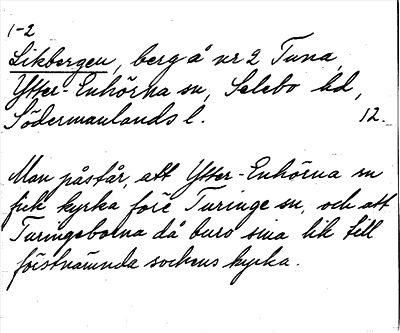 1-2
Likbergen, berg å nr 2 Tuna,
Ytter-Enhörna sn, Selebo hd,
Södermanlands l. 12.
Man påstår, att Ytter-Enhörna sn
fick kyrka före Turinge sn, och att
Turingeborna då buro sina lik till
förstnämnda sockens kyrka.